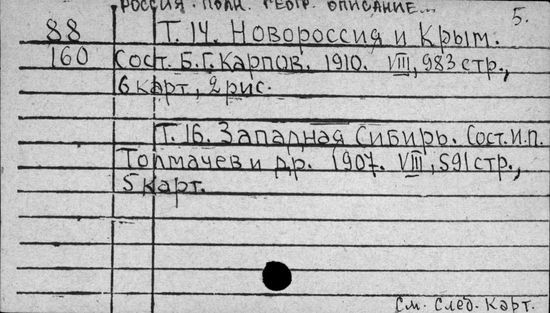 Россия. Полн. геогр. описание... 5.
88 Т. 14. Новороссия и Крым.
160 Сост. Б.Г. Карпов. 1910. VIII, 983 стр.,
6 карт, 2 рис.
Т. 16. Западная Сибирь. Сост. И.П.
Толмачев и др. 1907. VIII, 591 стр.,
5 карт.
См. след. карт.